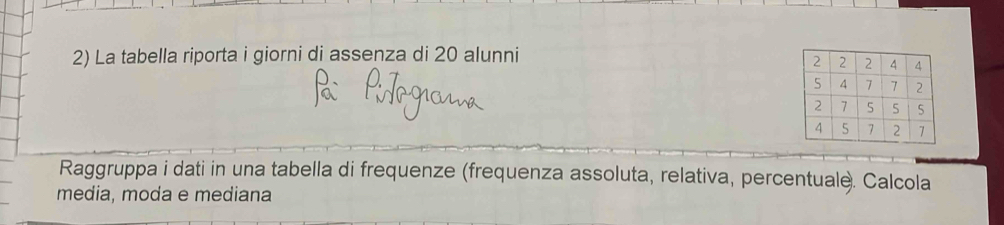 2) La tabella riporta i giorni di assenza di 20 alunni
2 2 2 4 4
5 4 7 7 2
2 7 5 5 5
4 5 7 2 7
Raggruppa i dati in una tabella di frequenze (frequenza assoluta, relativa, percentuale). Calcola
media, moda e mediana